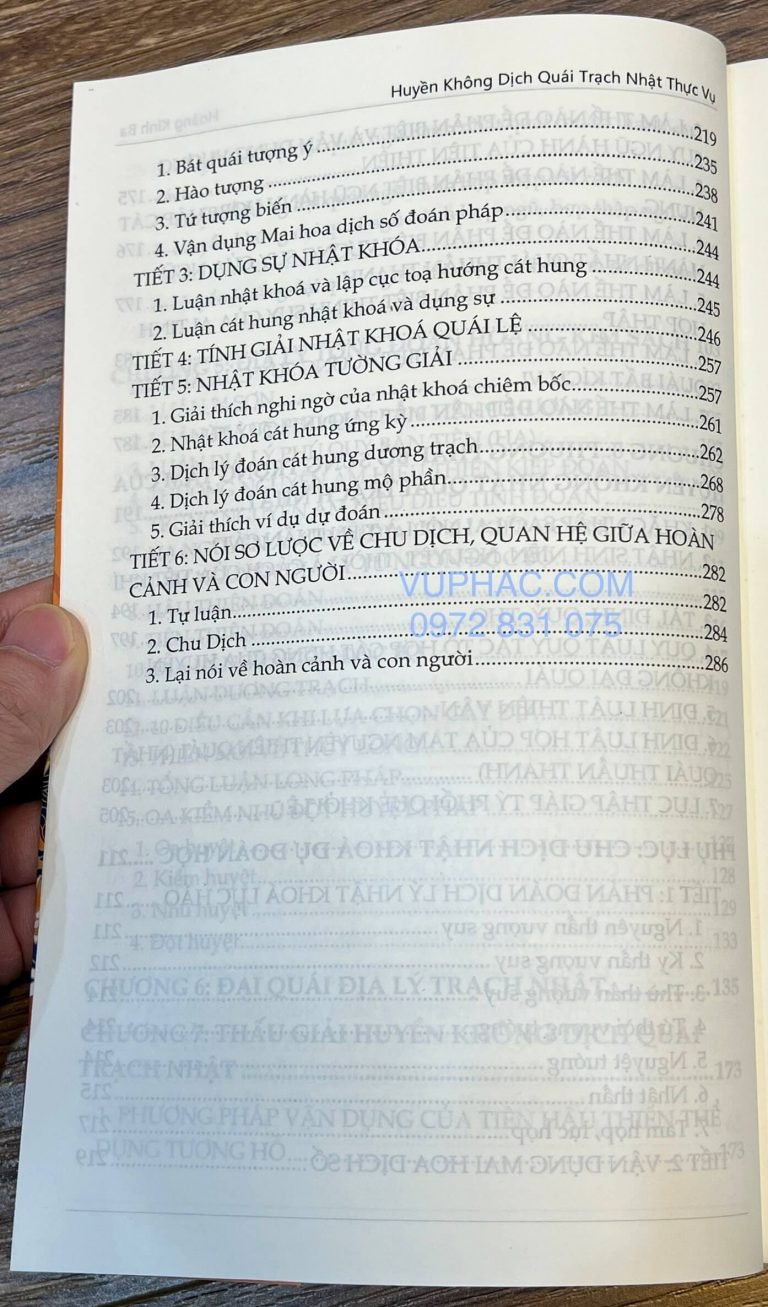 Huyền Không Dịch Quái Trạch Nhật Thực Vụ
1. Bát quái tượng ý ........219
2. Hào tượng ........235
3. Tứ tượng biến ........238
4. Vận dụng Mai hoa dịch số đoán pháp........241
TIẾT 3: DỤNG SỰ NHẬT KHÓA........244
1. Luận nhật khoá và lập cục toạ hướng cát hung ........244
2. Luận cát hung nhật khoá và dụng sự ........245
TIẾT 4: TÍNH GIẢI NHẬT KHOÁ QUÁI LỆ ........246
TIẾT 5: NHẬT KHÓA TƯỜNG GIẢI ........257
1. Giải thích nghi ngờ của nhật khoá chiêm bốc........257
2. Nhật khoá cát hung ứng kỳ ........261
3. Dịch lý đoán cát hung dương trạch........262
4. Dịch lý đoán cát hung mộ phần........268
5. Giải thích ví dụ dự đoán ........278
TIẾT 6: NÓI SƠ LƯỢC VỀ CHU DỊCH, QUAN HỆ GIỮA HOÀN
CẢNH VÀ CON NGƯỜI........282
1. Tự luận........282
2. Chu Dịch ........284
3. Lại nói về hoàn cảnh và con người........286
VUPHAC.COM
0972 831 075